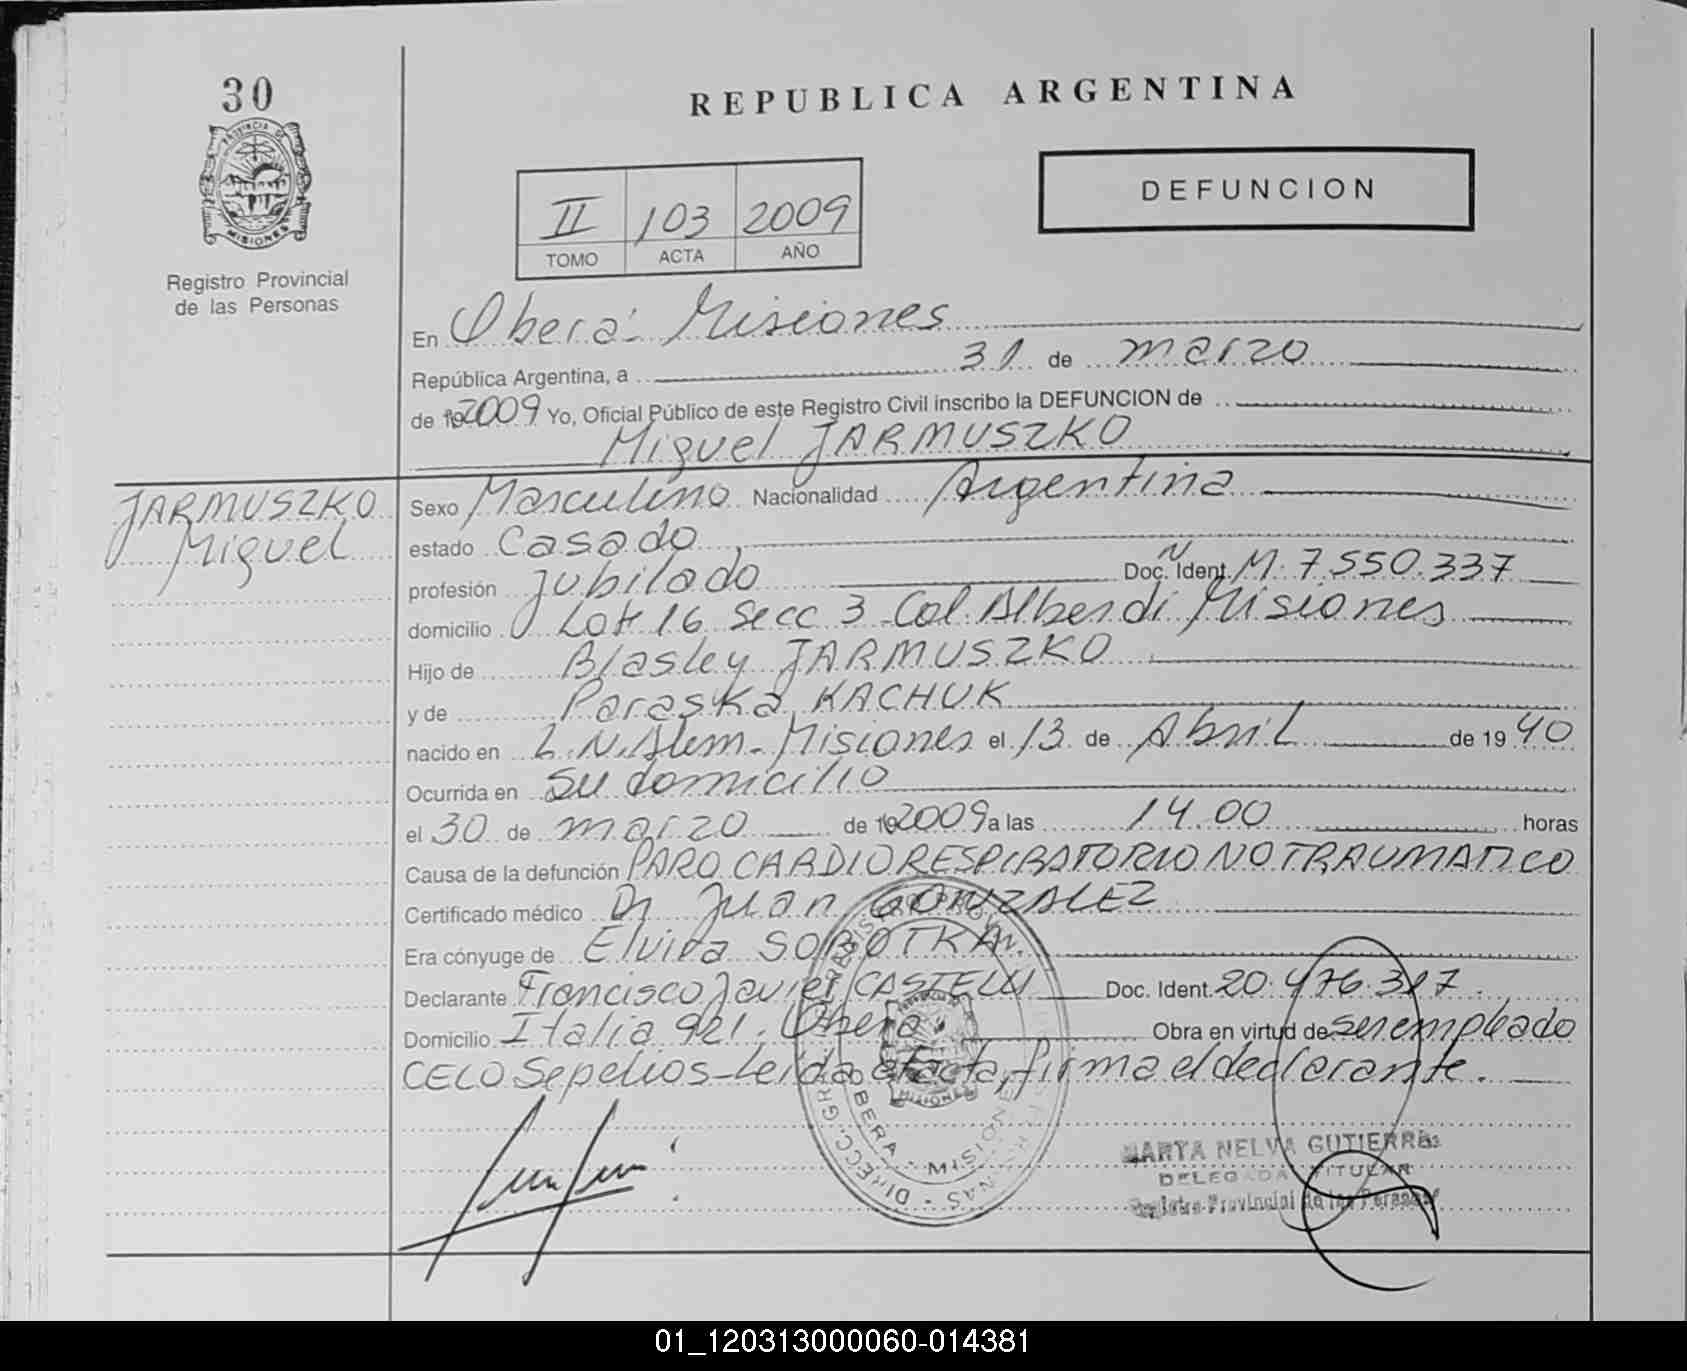 30
REPUBLICA ARGENTINA
PROVINCIA DE
MISIONES
DEFUNCION
II 103 2009
TOMO ACTA AÑO
Registro Provincial
de las Personas
En Oberá - Misiones
República Argentina, a 31 de marzo
de 2009 Yo, Oficial Público de este Registro Civil inscribo la DEFUNCION de
Miguel JARMUSZKO
JARMUSZKO
Miguel
Sexo Masculino Nacionalidad Argentina
estado Casado
profesión jubilado Doc. Ident. M. 7.550.337
domicilio Lote 16 Secc 3 Col. Alberdi Misiones
Hijo de Blasley JARMUSZKO
y de Paraska KACHUK
nacido en L.N.Alem - Misiones el 13 de Abril de 1940
Ocurrida en su domicilio
el 30 de marzo de 2009 a las 14.00 horas
Causa de la defunción PARO CARDIORESPIRATORIO NO TRAUMATICO
Certificado médico Dr Juan GONZALEZ
Era cónyuge de Elvira SOBOTKA
Declarante Francisco Javier CASTELLI Doc. Ident. 20.476.317
Domicilio Italia 921, Oberá Obra en virtud de ser empleado
CELO Sepelios - Leida el acta, firma el declarante.
OBERA - MISIONES
MARTA NELVA GUTIERREZ
DELEGADA TITULAR
Registro Provincial de las Personas
01_120313000060-014381